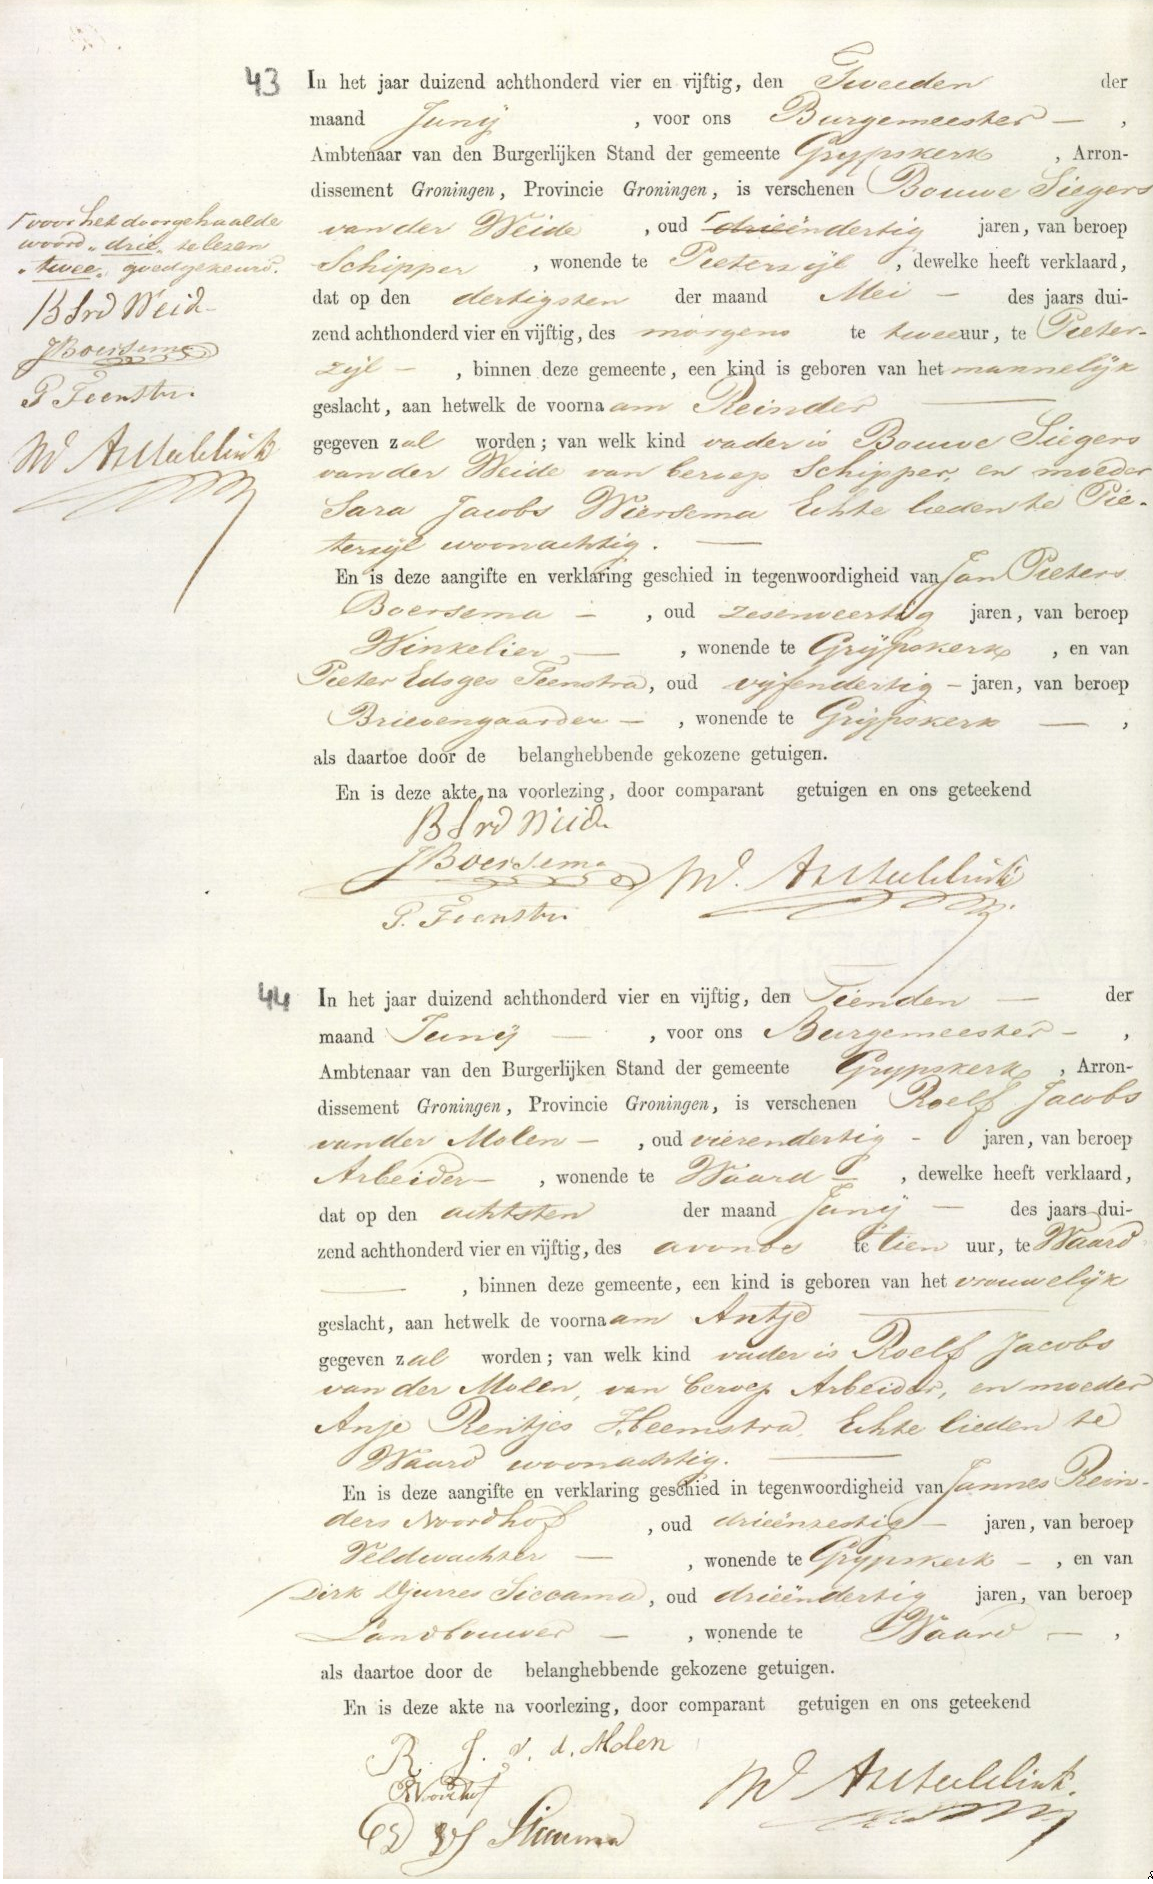 43
In het jaar duizend achthonderd vier en vijftig, den Tweeden der
maand Junij , voor ons Burgemeester — ,
Ambtenaar van den Burgerlijken Stand der gemeente Grypskerk , Arron-
dissement Groningen, Provincie Groningen, is verschenen Bouwe Siegers
van der Weide , oud drieëndertig jaren, van beroep
Schipper , wonende te Pieterzijl , dewelke heeft verklaard,
dat op den dertigsten der maand Mei — des jaars dui-
zend achthonderd vier en vijftig, des morgens te twee uur, te Pieter-
zijl — , binnen deze gemeente, een kind is geboren van het mannelijk
geslacht, aan hetwelk de voornaam Reinder —
gegeven zal worden; van welk kind vader is Bouwe Siegers
van der Weide van beroep Schipper, en moeder
Sara Jacobs Wiersema Echte lieden te Pie-
terzijl woonachtig. —
En is deze aangifte en verklaring geschied in tegenwoordigheid van Jan Pieters
Boersema — , oud zesenveertig jaren, van beroep
Winkelier — , wonende te Grijpskerk , en van
Pieter Edsges Teenstra, oud vijfendertig — jaren, van beroep
Brievengaarder — , wonende te Grijpskerk — ,
als daartoe door de belanghebbende gekozene getuigen.
En is deze akte na voorlezing, door comparant getuigen en ons geteekend
B S vd Weid
JBoersema
P. Teenstra
voor het doorgehaalde
woord „drie" te lezen
„twee" goedgekeurd.
B S vd Weid
JBoersema
P Teenstra
44
In het jaar duizend achthonderd vier en vijftig, den Tienden — der
maand Junij — , voor ons Burgemeester — ,
Ambtenaar van den Burgerlijken Stand der gemeente Grypskerk , Arron-
dissement Groningen, Provincie Groningen, is verschenen Roelf Jacobs
van der Molen — , oud vierendertig - jaren, van beroep
Arbeider — , wonende te Waard , dewelke heeft verklaard,
dat op den achtsten der maand Junij — des jaars dui-
zend achthonderd vier en vijftig, des avonds te tien uur, te Waard
— , binnen deze gemeente, een kind is geboren van het vrouwelijk
geslacht, aan hetwelk de voornaam Antje —
gegeven zal worden; van welk kind vader is Roelf Jacobs
van der Molen, van beroep Arbeider, en moeder
Anje Rentjes Heemstra, Echte lieden te
Waard woonachtig. —
En is deze aangifte en verklaring geschied in tegenwoordigheid van Jannes Rein-
ders Noordhof , oud drieënzestig — jaren, van beroep
Veldwachter — , wonende te Grypskerk — , en van
Dirk Djurres Siccama, oud drieëndertig jaren, van beroep
Landbouwer — , wonende te Waard — ,
als daartoe door de belanghebbende gekozene getuigen.
En is deze akte na voorlezing, door comparant getuigen en ons geteekend
R. J. v. d. Molen
Noordhof